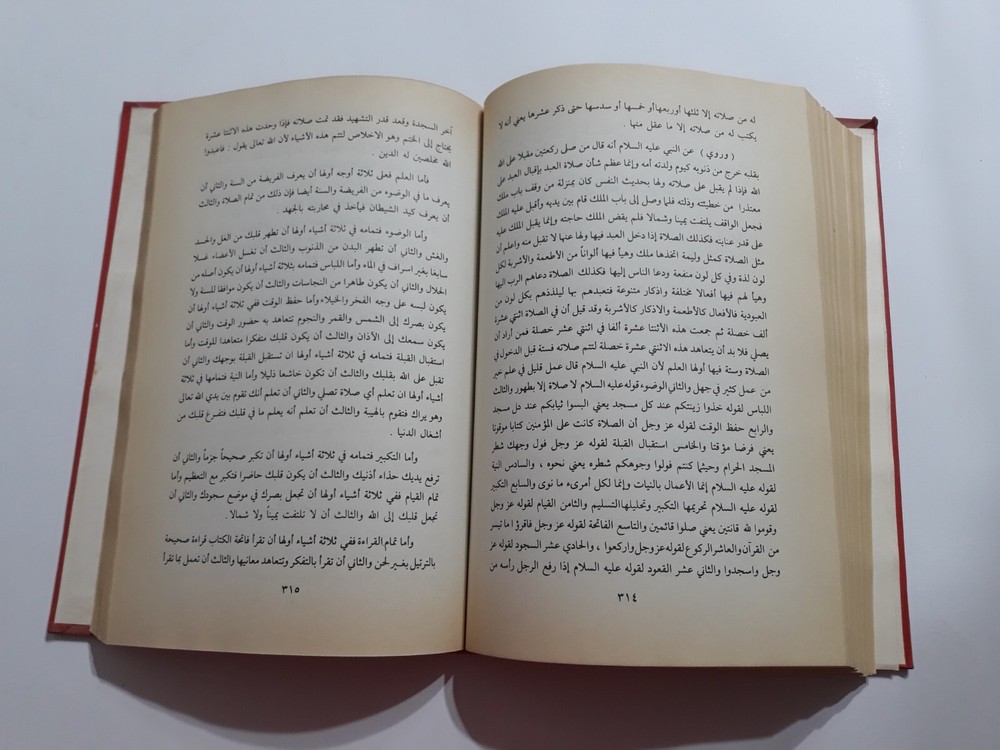 له من صلاته إلا ثلثها أو ربعها أو خمسها أو سدسها حتى ذكر عشرها يعني أنه لا
يكتب له من صلاته إلا ما عقل منها .
( وروي ) عن النبي عليه السلام أنه قال من صلى ركعتين مقبلا على الله
بقلبه خرج من ذنوبه كيوم ولدته أمه وإنما عظم شأن صلاة العبد بإقبال العبد على
الله فإذا لم يقبل على صلاته ولها بحديث النفس كان بمنزلة من وقف بباب ملك
معتذرا من خطيئته وزلته فلما وصل إلى باب الملك قام بين يديه وأقبل عليه الملك
فجعل الواقف يلتفت يمينا وشمالا فلم يقض الملك حاجته وإنما يقبل الملك عليه
على قدر عنايته فكذلك الصلاة إذا دخل العبد فيها ولها عنها لا تقبل منه واعلم أن
مثل الصلاة كمثل وليمة اتخذها ملك وهيأ فيها ألواناً من الأطعمة والأشربة لكل
لون لذة وفي كل لون منفعة ودعا الناس إليها فكذلك الصلاة دعاهم الرب اليها
وهيأ لهم فيها أفعالا مختلفة واذكار متنوعة فتعبدهم بها ليلذذهم بكل لون من
العبودية فالأفعال كالأطعمة والأذكار كالأشربة وقد قيل أن في الصلاة اثنتي عشرة
ألف خصلة ثم جمعت هذه الأثنتا عشرة ألفا في اثنتي عشرة خصلة فمن أراد أن
يصلي فلا بد أن يتعاهد هذه الاثنتي عشرة خصلة لتتم صلاته فستة قبل الدخول في
الصلاة وستة فيها أولها العلم لأن النبي عليه السلام قال عمل قليل في علم خير
من عمل كثير في جهل والثاني الوضوء قوله عليه السلام لا صلاة إلا بطهور والثالث
اللباس لقوله خذوا زينتكم عند كل مسجد يعني البسوا ثيابكم عند كل مسجد
والرابع حفظ الوقت لقوله عز وجل أن الصلاة كانت على المؤمنين كتابا موقوتا
يعني فرضا مؤقتا والخامس استقبال القبلة لقوله عز وجل فول وجهك شطر
المسجد الحرام وحيثما كنتم فولوا وجوهكم شطره يعني نحوه ، والسادس النية
لقوله عليه السلام إنما الأعمال بالنيات وإنما لكل أمرىء ما نوى والسابع التكبير
لقوله عليه السلام تحريمها التكبير وتحليلها التسليم والثامن القيام لقوله عز وجل
وقوموا لله قانتين يعني صلوا قائمين والتاسع الفاتحة لقوله عز وجل فاقرؤا ما تيسر
من القرآن والعاشر الركوع لقوله عز وجل واركعوا ، والحادي عشر السجود لقوله عز
وجل واسجدوا والثاني عشر القعود لقوله عليه السلام إذا رفع الرجل رأسه من
٣١٤
آخر السجدة وقعد قدر التشهيد فقد تمت صلاته فإذا وحدت هذه الاثنتا عشرة
يحتاج إلى الختم وهو الاخلاص لتتم هذه الأشياء لأن الله تعالى يقول : فاعبدوا
الله مخلصين له الدين .
فأما العلم فعلى ثلاثة أوجه أولها أن يعرف الفريضة من السنة والثاني أن
يعرف ما في الوضوء من الفريضة والسنة أيضا فإن ذلك من تمام الصلاة والثالث
أن يعرف كيد الشيطان فيأخذ في محاربته بالجهد .
وأما الوضوء فتمامه في ثلاثة أشياء أولها أن تطهر قلبك من الغل والحسد
والغش والثاني أن تطهر البدن من الذنوب والثالث أن تغسل الأعضاء غسلا
سابغا بغير اسراف في الماء وأما اللباس فتمامه بثلاثة أشياء أولها أن يكون أصله من
الحلال والثاني أن يكون طاهرا من النجاسات والثالث أن يكون موافقا للسنة ولا
يكون لبسه على وجه الفخر والخيلاء وأما حفظ الوقت ففي ثلاثة أشياء أولها أن
يكون بصرك إلى الشمس والقمر والنجوم تتعاهد به حضور الوقت والثاني أن
يكون سمعك إلى الأذان والثالث أن يكون قلبك متفكرا متعاهدا للوقت وأما
استقبال القبلة فتمامه في ثلاثة أشياء أولها أن تستقبل القبلة بوجهك والثاني أن
تقبل على الله بقلبك والثالث أن تكون خاشعا ذليلا وأما النية فتمامها في ثلاثة
أشياء أولها ان تعلم أي صلاة تصلي والثاني أن تعلم أنك تقوم بين يدي الله تعالى
وهو يراك فتقوم بالهيبة والثالث أن تعلم أنه يعلم ما في قلبك فتفرغ قلبك من
أشغال الدنيا .
وأما التكبير فتمامه في ثلاثة أشياء أولها أن تكبر صحيحاً جزماً والثاني أن
ترفع يديك حذاء أذنيك والثالث أن يكون قلبك حاضرا فتكبر مع التعظيم وأما
تمام القيام ففي ثلاثة أشياء أولها أن تجعل بصرك في موضع سجودك والثاني أن
تجعل قلبك إلى الله والثالث أن لا تلتفت يميناً ولا شمالا .
وأما تمام القراءة ففي ثلاثة أشياء أولها أن تقرأ فاتحة الكتاب قراءة صحيحة
بالترتيل بغير لحن والثاني أن تقرأ بالتفكر وتتعاهد معانيها والثالث أن تعمل بما تقرأ
٣١٥